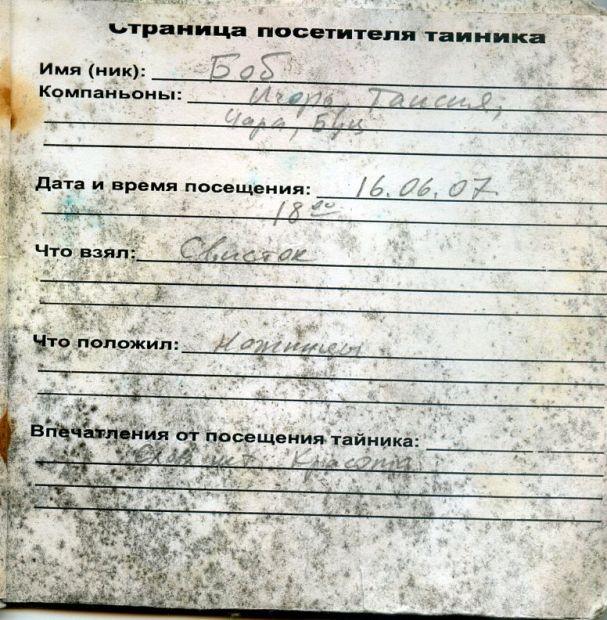 Страница посетителя тайника
Имя (ник): Боб
Компаньоны: Игорь, Таисия,
Чара, Буц
Дата и время посещения: 16.06.07
18 00
Что взял: Свисток
Что положил: Ножницы
Впечатления от посещения тайника:
Красота